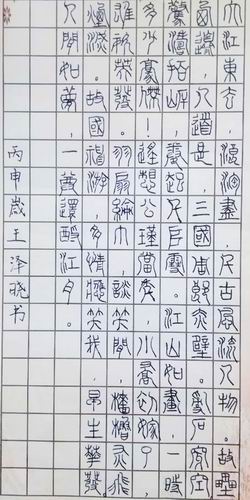 大江東去，浪淘盡，千古風流人物。故壘
西邊，人道是，三國周郎赤壁。亂石穿空，
驚濤拍岸，卷起千堆雪。江山如畫，一時
多少豪傑！遙想公瑾當年，小喬初嫁了，
雄姿英發，羽扇綸巾，談笑間，檣櫓灰飛
煙滅。故國神游，多情應笑我，早生華發。
人間如夢，一尊還酹江月。
丙申歲王泽晓书